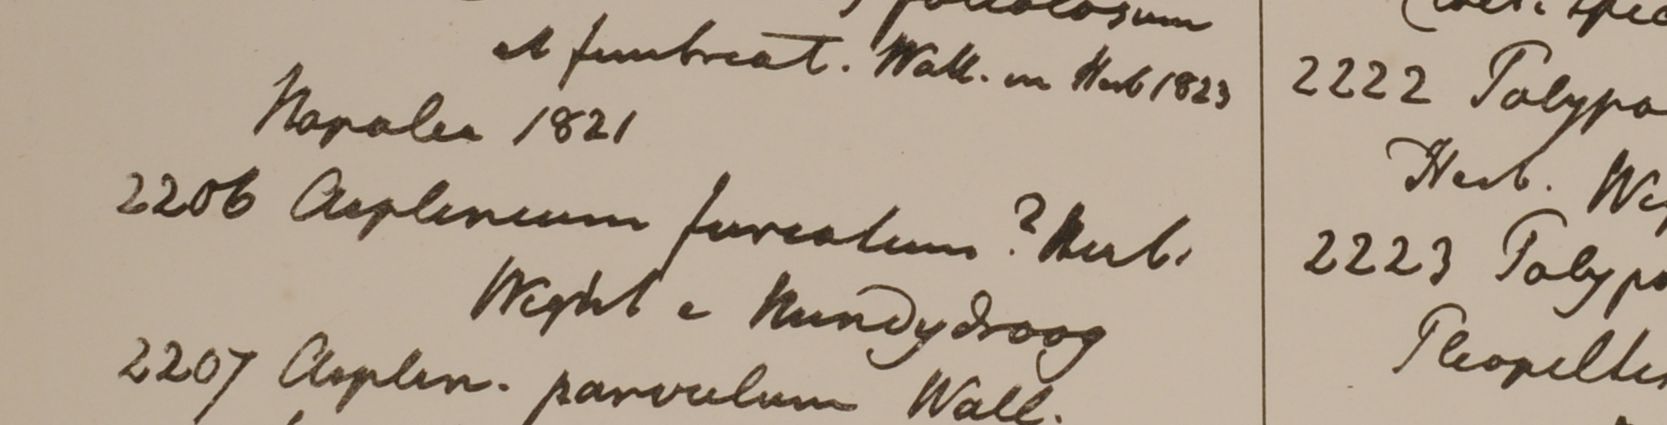 foliolosum
et fimbreat. Wall. in Herb 1823
Napalea 1821
2206 Asplenium furcatum? Herb.
Wight e Nundydroog
2207 Asplen. parvulum Wall.
2222 Polypo
Herb. Wig
2223 Polypo
Pleopeltis